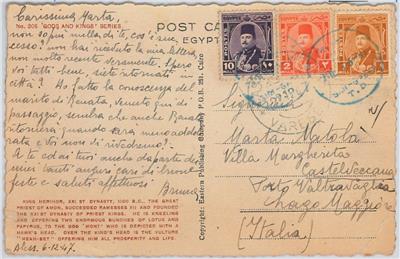 Carissima Marta,
No. 205 "GODS AND KINGS" SERIES.
POST CARD
EGYPT
non so più nulla di te, cos'è successo?
non hai ricevuto la mia lettera
non molto recente veramente. Spero
voi tutti bene, siete ritornati in
città? Ho fatto la conoscenza del
marito di Renata, venuto qui di
passaggio, sembra che anche
ritornerà quando sarà
rata e voi non si rivedremo?
A te ed ai tuoi anche da parte dei
miei tanti auguri cari di buone
feste e saluti affettuosi
Bruna
KING HERIHOR, XXI ST DYNASTY, 1100 B.C., THE GREAT
PRIEST OF AMON, SUCCEEDED RAMESSES XII AND FOUNDED
THE XXI ST DYNASTY OF PRIEST KINGS. HE IS KNEELING
AND OFFERING TWO ENORMOUS BUNDLES OF LOTUS AND
PAPYRUS, TO THE GOD "MONT" WHO IS DEPICTED WITH A
HAWK'S HEAD. OVER THE KING'S HEAD IS THE VULTURE
OFFERING HIM ALL PROSPERITY AND LIFE.
Aless. 6-12-47.
Copyright: Eastern Publishing Company P.O.B. 281, Cairo
10
2
1
Signorina
Marta Matoloi
Villa Margherita
Castelveccana
Porto Valtravaglia
Lago Maggiore
(Italia)